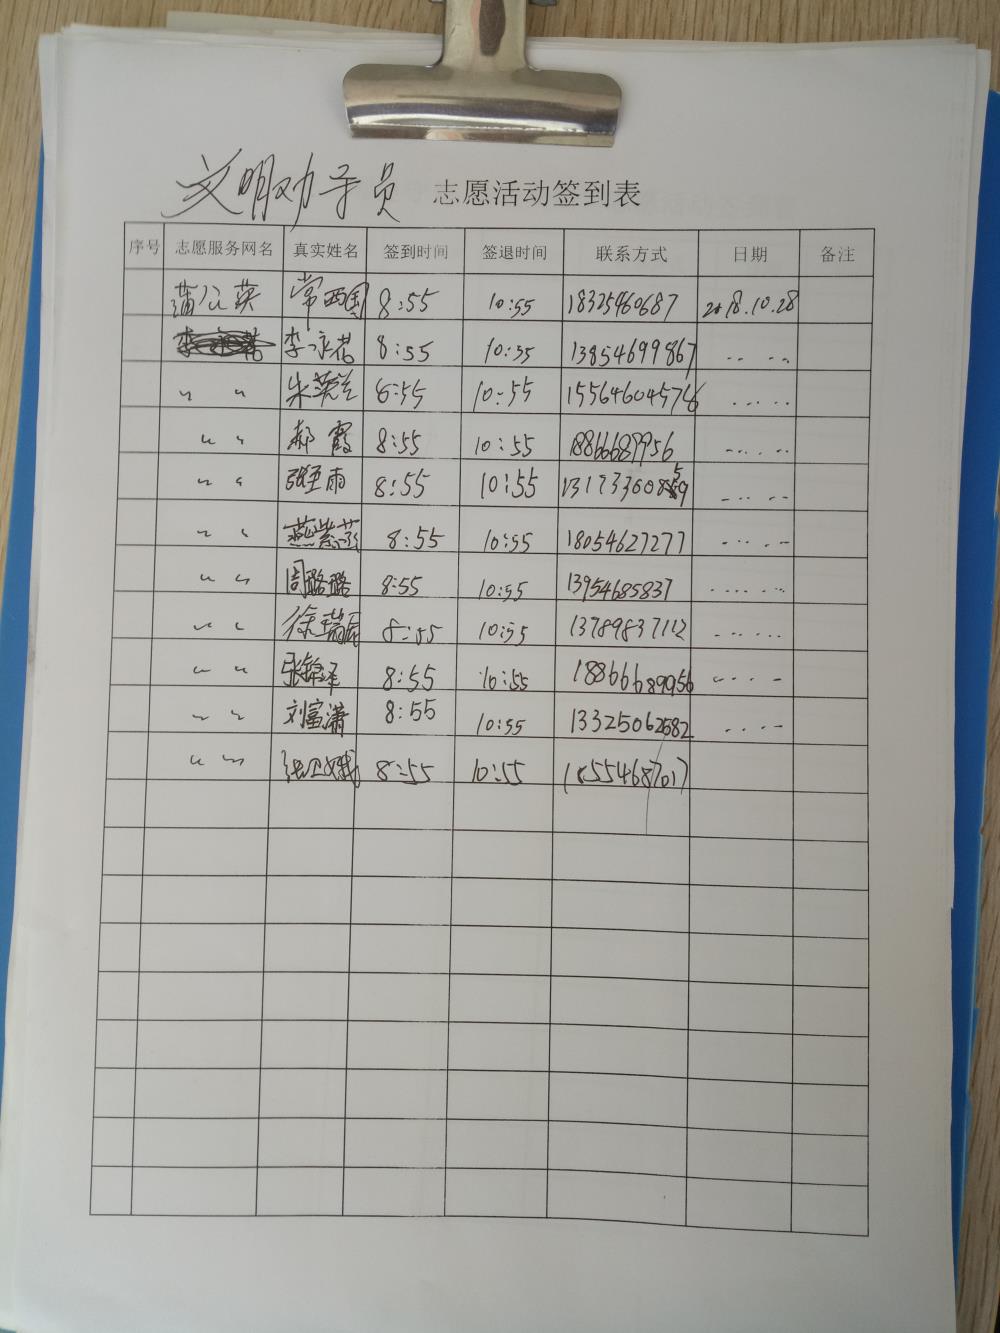 文明劝导员 志愿活动签到表
序号 志愿服务网名 真实姓名 签到时间 签退时间 联系方式 日期 备注
蒲公英 常西国 8:55 10:55 18325460687 2018.10.28
李永花 8:55 10:55 13854699867 ·· ··
〃 〃 朱荣兰 8:55 10:55 15564604576 ·· ··
〃 〃 郝霞 8:55 10:55 18866689956 ·· ··
〃 〃 8:55 10:55 ·· ··
〃 〃 燕紫 8:55 10:55 18054627277 ·· ··
〃 〃 周璐璐 8:55 10:55 13954685837 ·· ··
〃 〃 徐瑞辰 8:55 10:55 13789837112 ·· ··
〃 〃 张锦泽 8:55 10:55 18866689956 ·· ··
〃 〃 刘富潇 8:55 10:55 13325062582 ·· ··
〃 〃 8:55 10:55